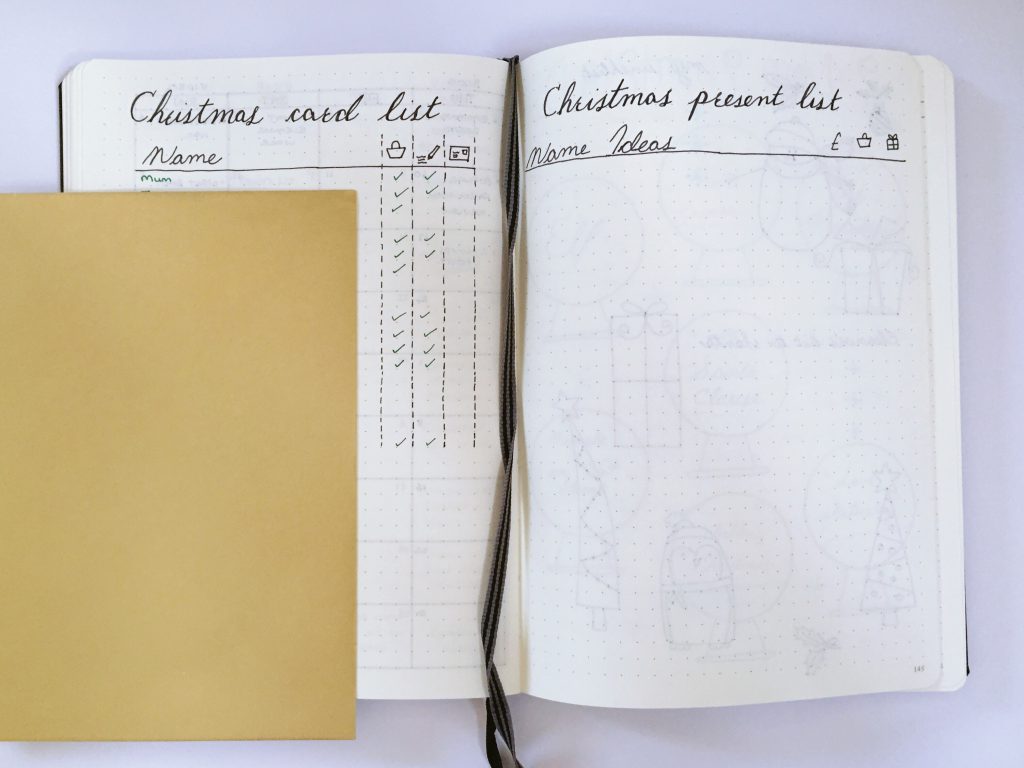 Christmas card list
Name
Mum
Christmas present list
Name Ideas £
145